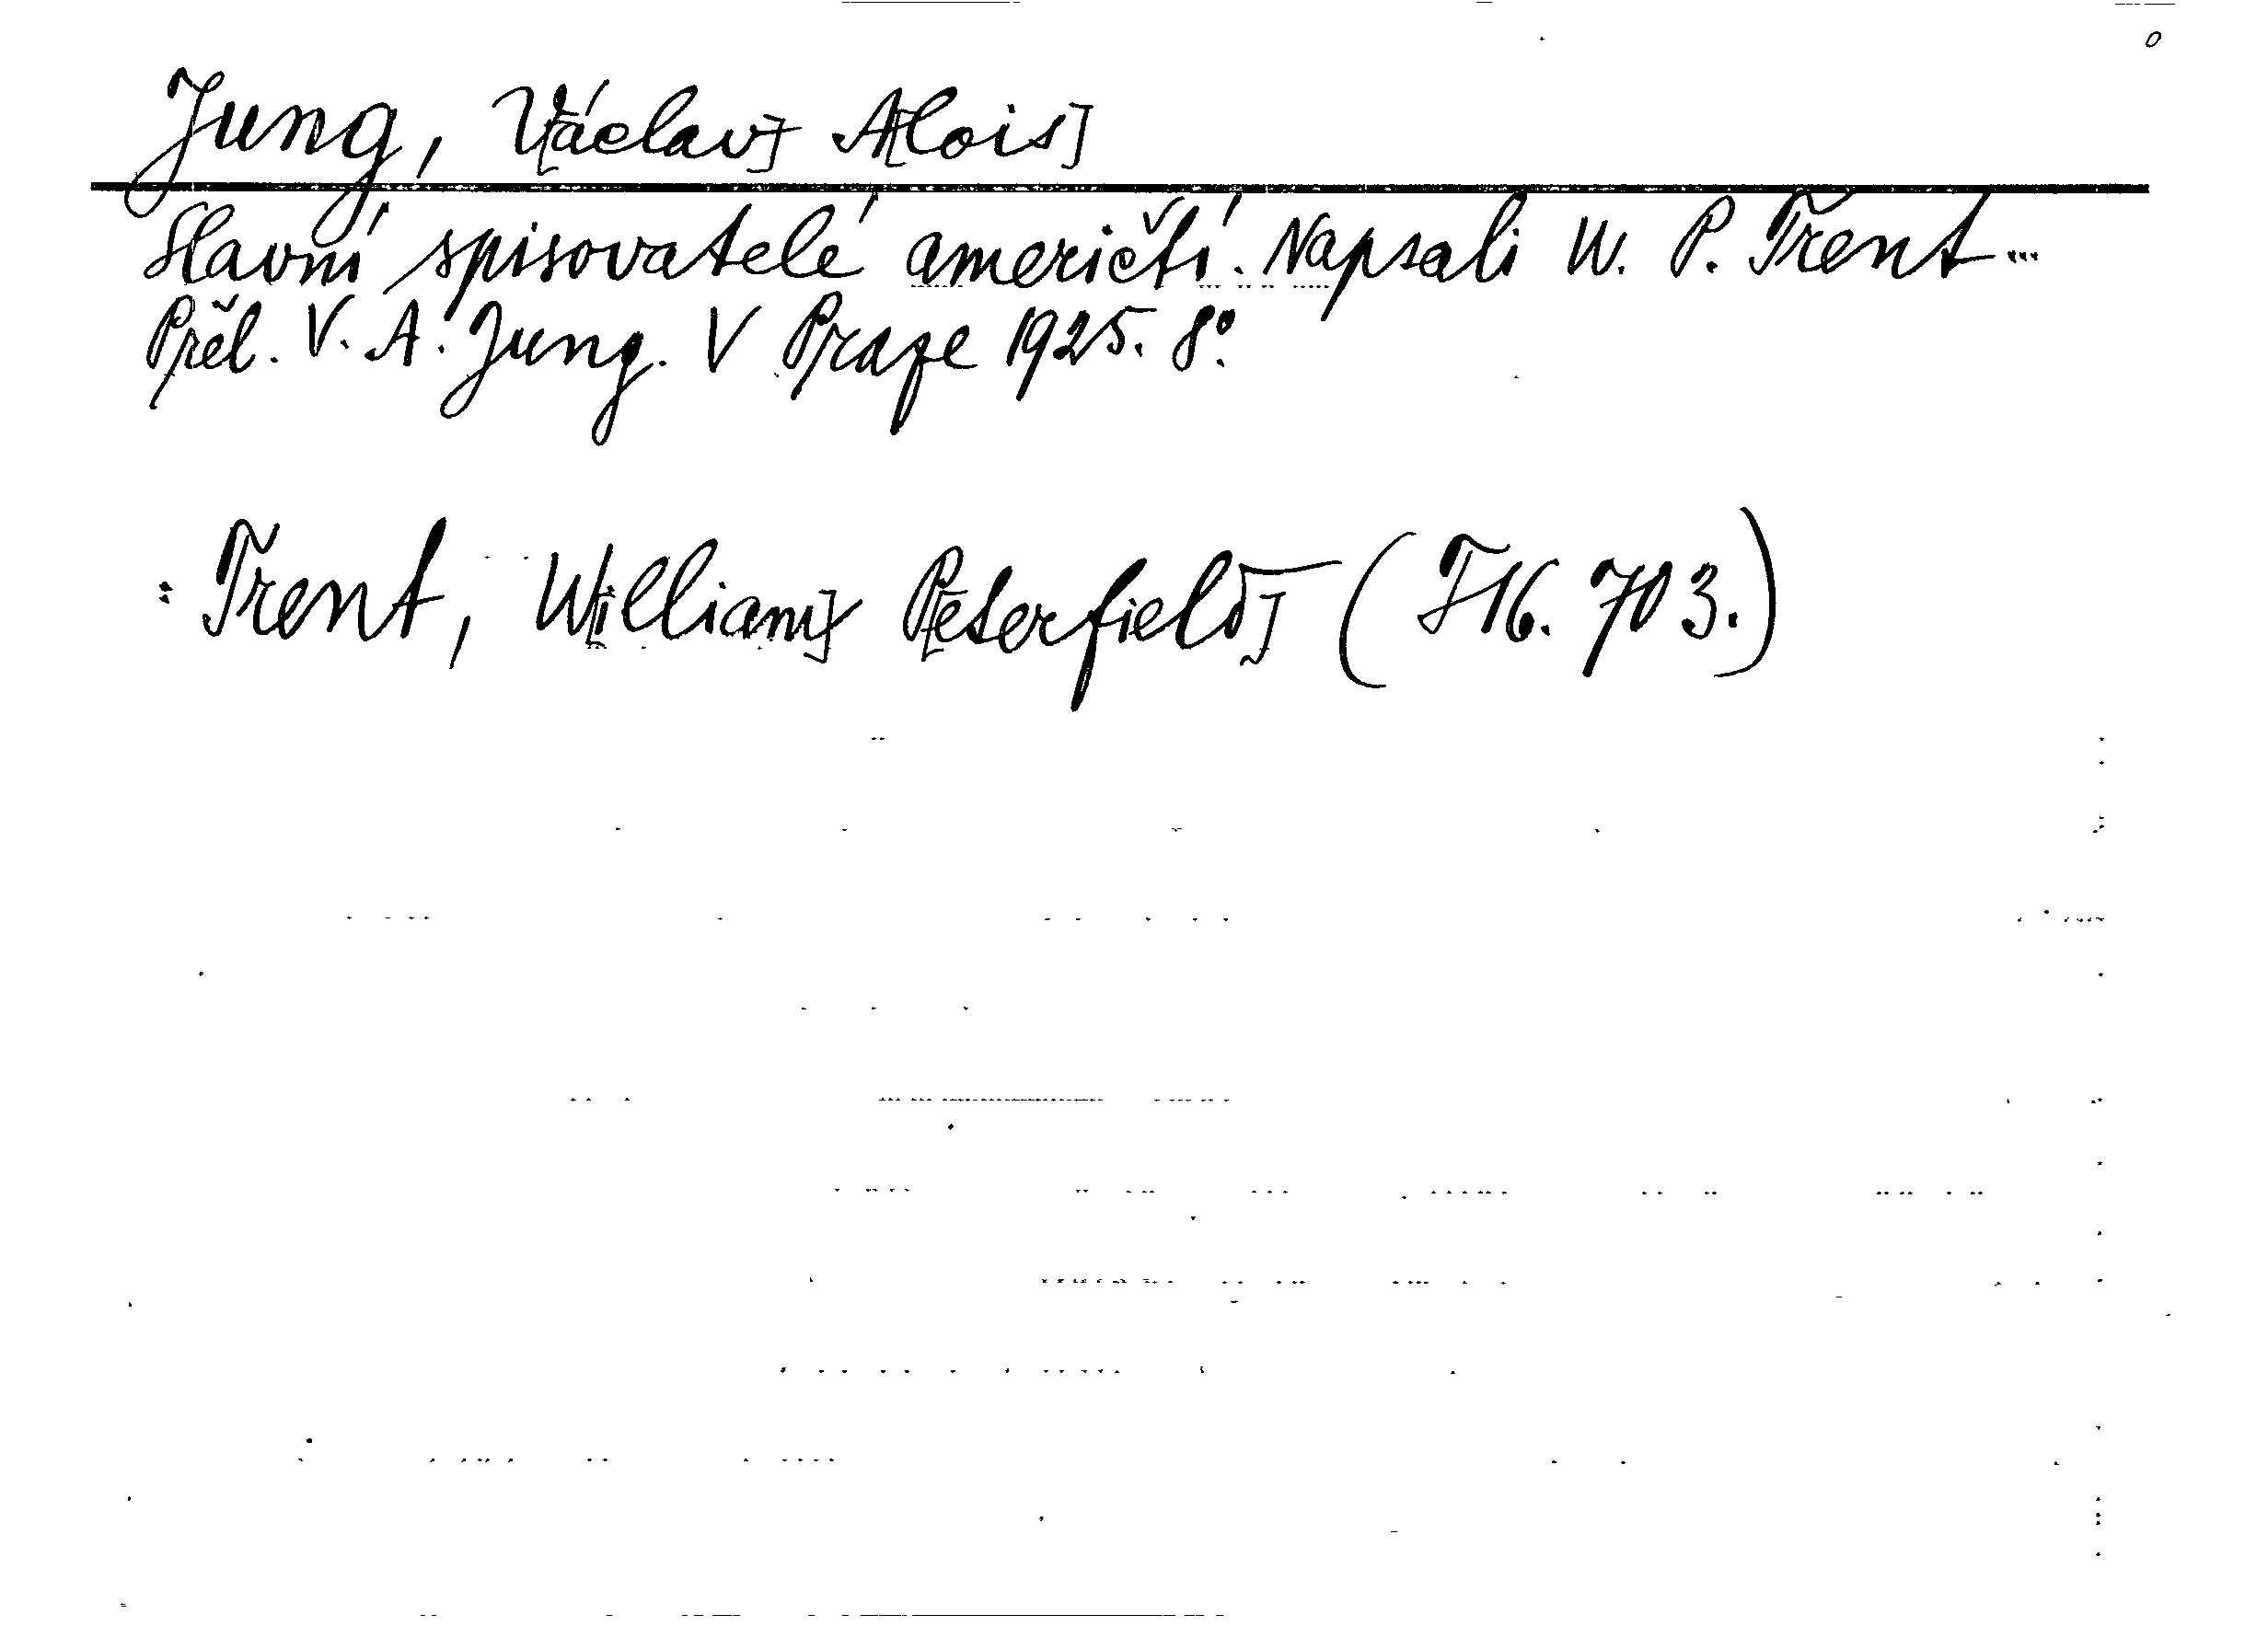 Jung, V[áclav] A[lois]
Slavní spisovatelé američtí. Napsali W. P. Trent...
Přel. V. A. Jung. V Praze 1925. 8°.
: Trent, W[illiam] P[eterfield] (F 16. 703.)